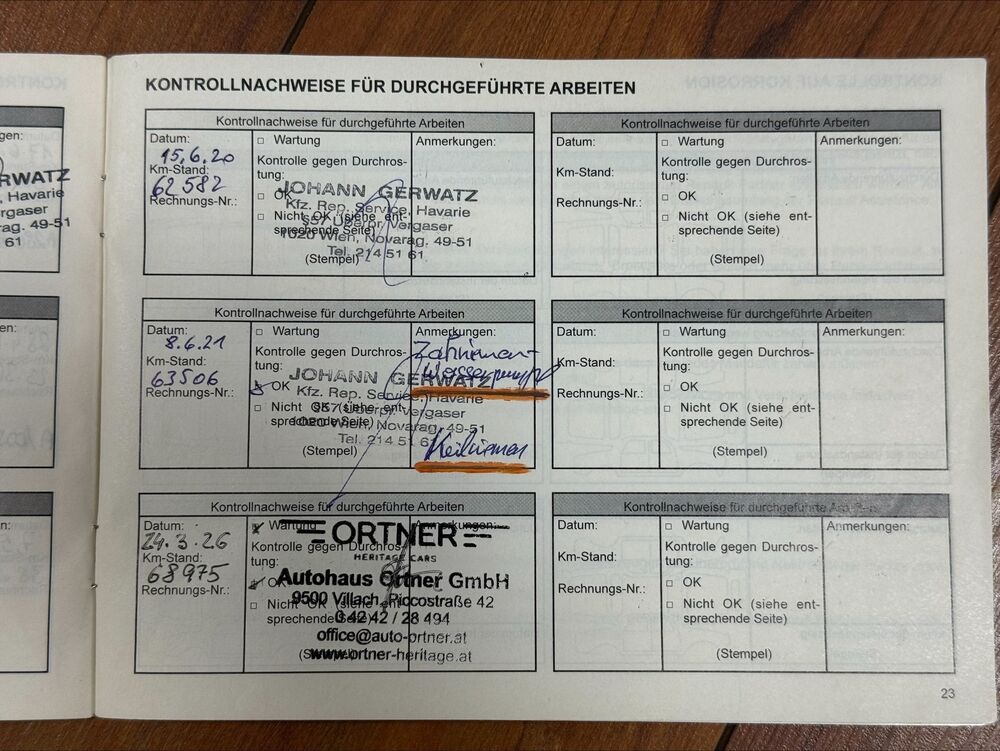 KONTROLLNACHWEISE FÜR DURCHGEFÜHRTE ARBEITEN
gen:
RWATZ
, Havarie
rgaser
ag. 49-51
61
en:
n:
Kontrollnachweise für durchgeführte Arbeiten
Datum:
15.6.20
Km-Stand:
62582
Rechnungs-Nr.:
□ Wartung
Kontrolle gegen Durchros-
tung:
□ OK
□ Nicht OK (siehe ent-
sprechende Seite)
(Stempel)
Anmerkungen:
JOHANN GERWATZ
Kfz. Rep. Service, Havarie
S57 Überpr. Vergaser
1020 Wien, Novarag. 49-51
Tel. 214 51 61
Kontrollnachweise für durchgeführte Arbeiten
Datum:
Km-Stand:
Rechnungs-Nr.:
□ Wartung
Kontrolle gegen Durchros-
tung:
□ OK
□ Nicht OK (siehe ent-
sprechende Seite)
(Stempel)
Anmerkungen:
Kontrollnachweise für durchgeführte Arbeiten
Datum:
8.6.21
Km-Stand:
63506
Rechnungs-Nr.:
□ Wartung
Kontrolle gegen Durchros-
tung:
OK
□ Nicht OK (siehe ent-
sprechende Seite)
(Stempel)
Anmerkungen:
Zahnriemen-
Wasserpumpe
Keilriemen
JOHANN GERWATZ
Kfz. Rep. Service, Havarie
S57 Überpr. Vergaser
1020 Wien, Novarag. 49-51
Tel. 214 51 61
Kontrollnachweise für durchgeführte Arbeiten
Datum:
Km-Stand:
Rechnungs-Nr.:
□ Wartung
Kontrolle gegen Durchros-
tung:
□ OK
□ Nicht OK (siehe ent-
sprechende Seite)
(Stempel)
Anmerkungen:
Kontrollnachweise für durchgeführte Arbeiten
Datum:
24.3.26
Km-Stand:
68975
Rechnungs-Nr.:
Wartung
Kontrolle gegen Durchros-
tung:
OK
□ Nicht OK (siehe ent-
sprechende Seite)
(Stempel)
Anmerkungen:
ORTNER
HERITAGE CARS
Autohaus Ortner GmbH
9500 Villach, Piccostraße 42
0 42 42 / 28 494
office@auto-ortner.at
www.ortner-heritage.at
Kontrollnachweise für durchgeführte Arbeiten
Datum:
Km-Stand:
Rechnungs-Nr.:
□ Wartung
Kontrolle gegen Durchros-
tung:
□ OK
□ Nicht OK (siehe ent-
sprechende Seite)
(Stempel)
Anmerkungen:
23